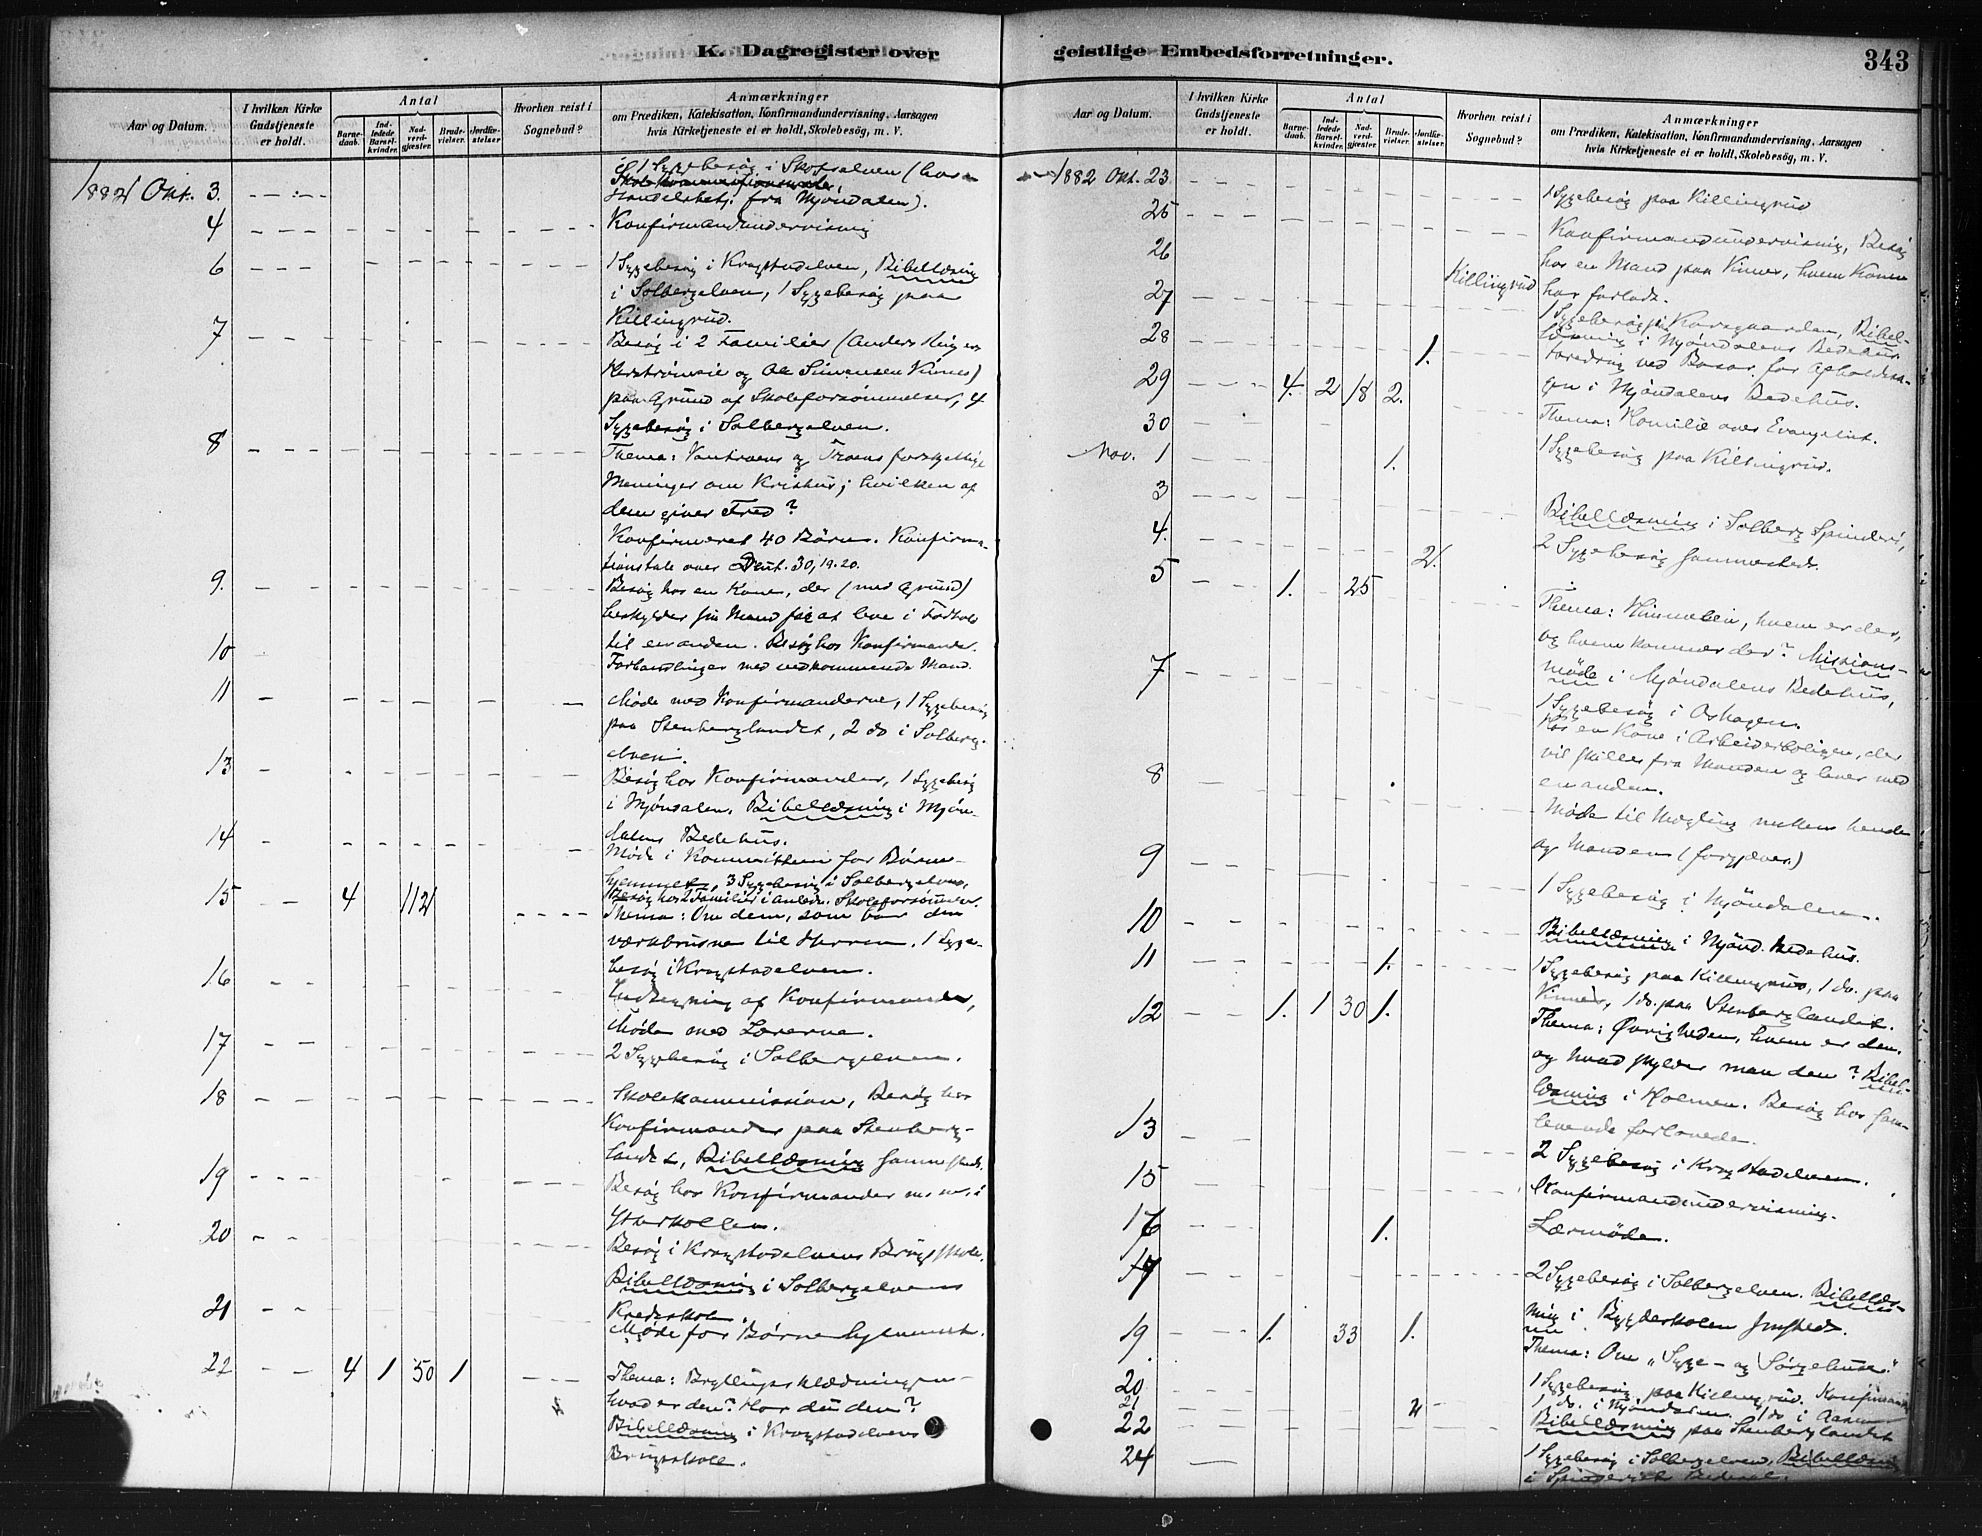 K. Dagregister over
geistlige Embedsforretninger.
343
Aar og Datum.
I hvilken Kirke Gudstjeneste er holdt.
Antal
Barnedaab.
Indledede Barselkvinder.
Nadverdgjæster.
Brudevielser.
Jordfæstelser
Hvorhen reist i Sognebud?
Anmærkninger
om Prædiken, Katekisation, Konfirmandundervisning, Aarsagen
hvis Kirketjeneste ei er holdt, Skolebesög, m. V.
1882 Okt. 3.
1 Sygebesøg i
fra Mjøndalen).
4 Konfirmandundervisning
6 1 Sygebesøg i Kragstadelven, Bibellæsning
i Solbergelven, 1 Sygebesøg paa
Killingrud.
7 Besøg i 2 Familier (Anders
og Ole Simensen Kinnes)
paa Grund af Skoleforsømmelser, 4
Sygebesøg i Solbergelven.
8 Thema: Vantroens og Troens forskjellige
Meninger om Kristus; hvilken af
dem giver Fred?
Konfirmeret 40 Børn. Konfirma-
tionstale over Deut. 30, 19. 20.
9. Besøg hos en Kone, der (med Grund)
beskylder sin Mand for at leve i Forhold
til en anden. Besøg hos Konfirmander.
10 Forhandlinger med vedkommende Mand.
11 Møde med Konfirmanderne, 1 Sygebesøg
paa Stenberglandet, 2 do i Solberg-
elven.
13 Besøg hos Konfirmander, 1 Sygebesøg
i Mjøndalen. Bibellæsning i Mjøn-
dalens Bedehus.
14 Møde i Kommitteen for Børne-
hjemmet, 3 Sygebesøg i Solbergelven,
Besøg hos 2 Familier i Anledn. Skoleforsømmelser.
15 4 112 Thema: Om dem, som bar den
værkbrudne til Herren. 1 Syge-
besøg i Kragstadelven.
16 Indtegning af Konfirmander,
Møde med Lærerne.
17 2 Sygebesøg i Solbergelven.
18 Skolekommission, Besøg hos
Konfirmander paa Stenberg-
landet, Bibellæsning sammesteds.
19 Besøg hos Konfirmander m. m. i
Ytterkollen.
20 Besøg i Kragstadelvens Brugsskole.
Bibellæsning i Solbergelvens
Kredsskole.
21 Møde for Børnehjemmet.
22 4 1 50 1 Thema: Bryllupsklædningen -
hvad er den? Har du den?
Bibellæsning i Kragstadelvens
Brugsskole.
Aar og Datum.
I hvilken Kirke Gudstjeneste er holdt.
Antal
Barnedaab.
Indledede Barselkvinder.
Nadverdgjæster.
Brudevielser.
Jordfæstelser.
Hvorhen reist i Sognebud?
Anmærkninger
om Prædiken, Katekisation, Konfirmandundervisning, Aarsagen
hvis Kirketjeneste ei er holdt, Skolebesög, m. V.
1882 Okt. 23 1 Sygebesøg paa Killingrud
25 Konfirmandundervisning, Besøg
26 hos en Mand paa Kinnes, hvem Konen
har forladt.
27 Killingrud 1 Sygebesøg i Korsgaarden, Bibel-
læsning i Mjøndalens Bedehus.
28 1. Foredrag ved Basar for
29 4. 2 18 2. i Mjøndalens Bedehus.
Thema: Homilie over Evangeliet.
30 1 Sygebesøg paa Killingrud.
Nov. 1 1.
3 Bibellæsning i Solberg Spinderi,
2 Sygebesøg sammesteds.
4. 2.
5 1. 25 Thema: Himmelen, hvem er der,
og hvem kommer der? Missions-
møde i Mjøndalens Bedehus,
1 Sygebesøg i Ashagen.
7 Hos en Kone i Arbeiderboligen, der
vil skilles fra Manden og lever med
en anden.
8 Møde til Mægling mellem hende
og Manden (forgjæves)
9 1 Sygebesøg i Mjøndalen.
10 Bibellæsning i Mjønd. Bedehus.
11 1. 1 Sygebesøg paa Killingrud, 1 do. paa
Kinnes, 1 do. paa Stenberglandet.
12 1. 1 30 1. Thema: Øvrigheden, hvem er den,
og hvad skylder man den? Bibel-
læsning i Holmen. Besøg hos sam-
levende forlovede.
13 2 Sygebesøg i Kragstadelven.
15 Konfirmandundervisning.
16 1. Lærmøde.
17 2 Sygebesøg i Solbergelven. Bibellæs-
ning i Bygdeskolen smsteds.
19. 1. 33 1. Thema: Om "Syge- og Sørgehuse."
20 1 Sygebesøg paa Killingrud. Konfirmand
21 2 1 do. i Mjøndalen. 1 do i
22 Bibellæsning paa Stenberglandet
24 1 Sygebesøg i Solbergelven. Bibellæsning
i Spinderiets Bedesal.